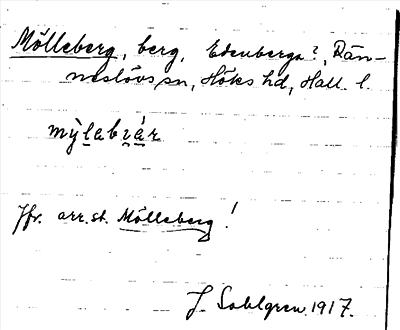 Mölleberg, berg, Edenberga?, Rän-
neslövs sn, Höks hd, Hall. l.
mỳlabɪ̯ár
Jfr. arr.st. Mölleberg!
J. Sahlgren. 1917.